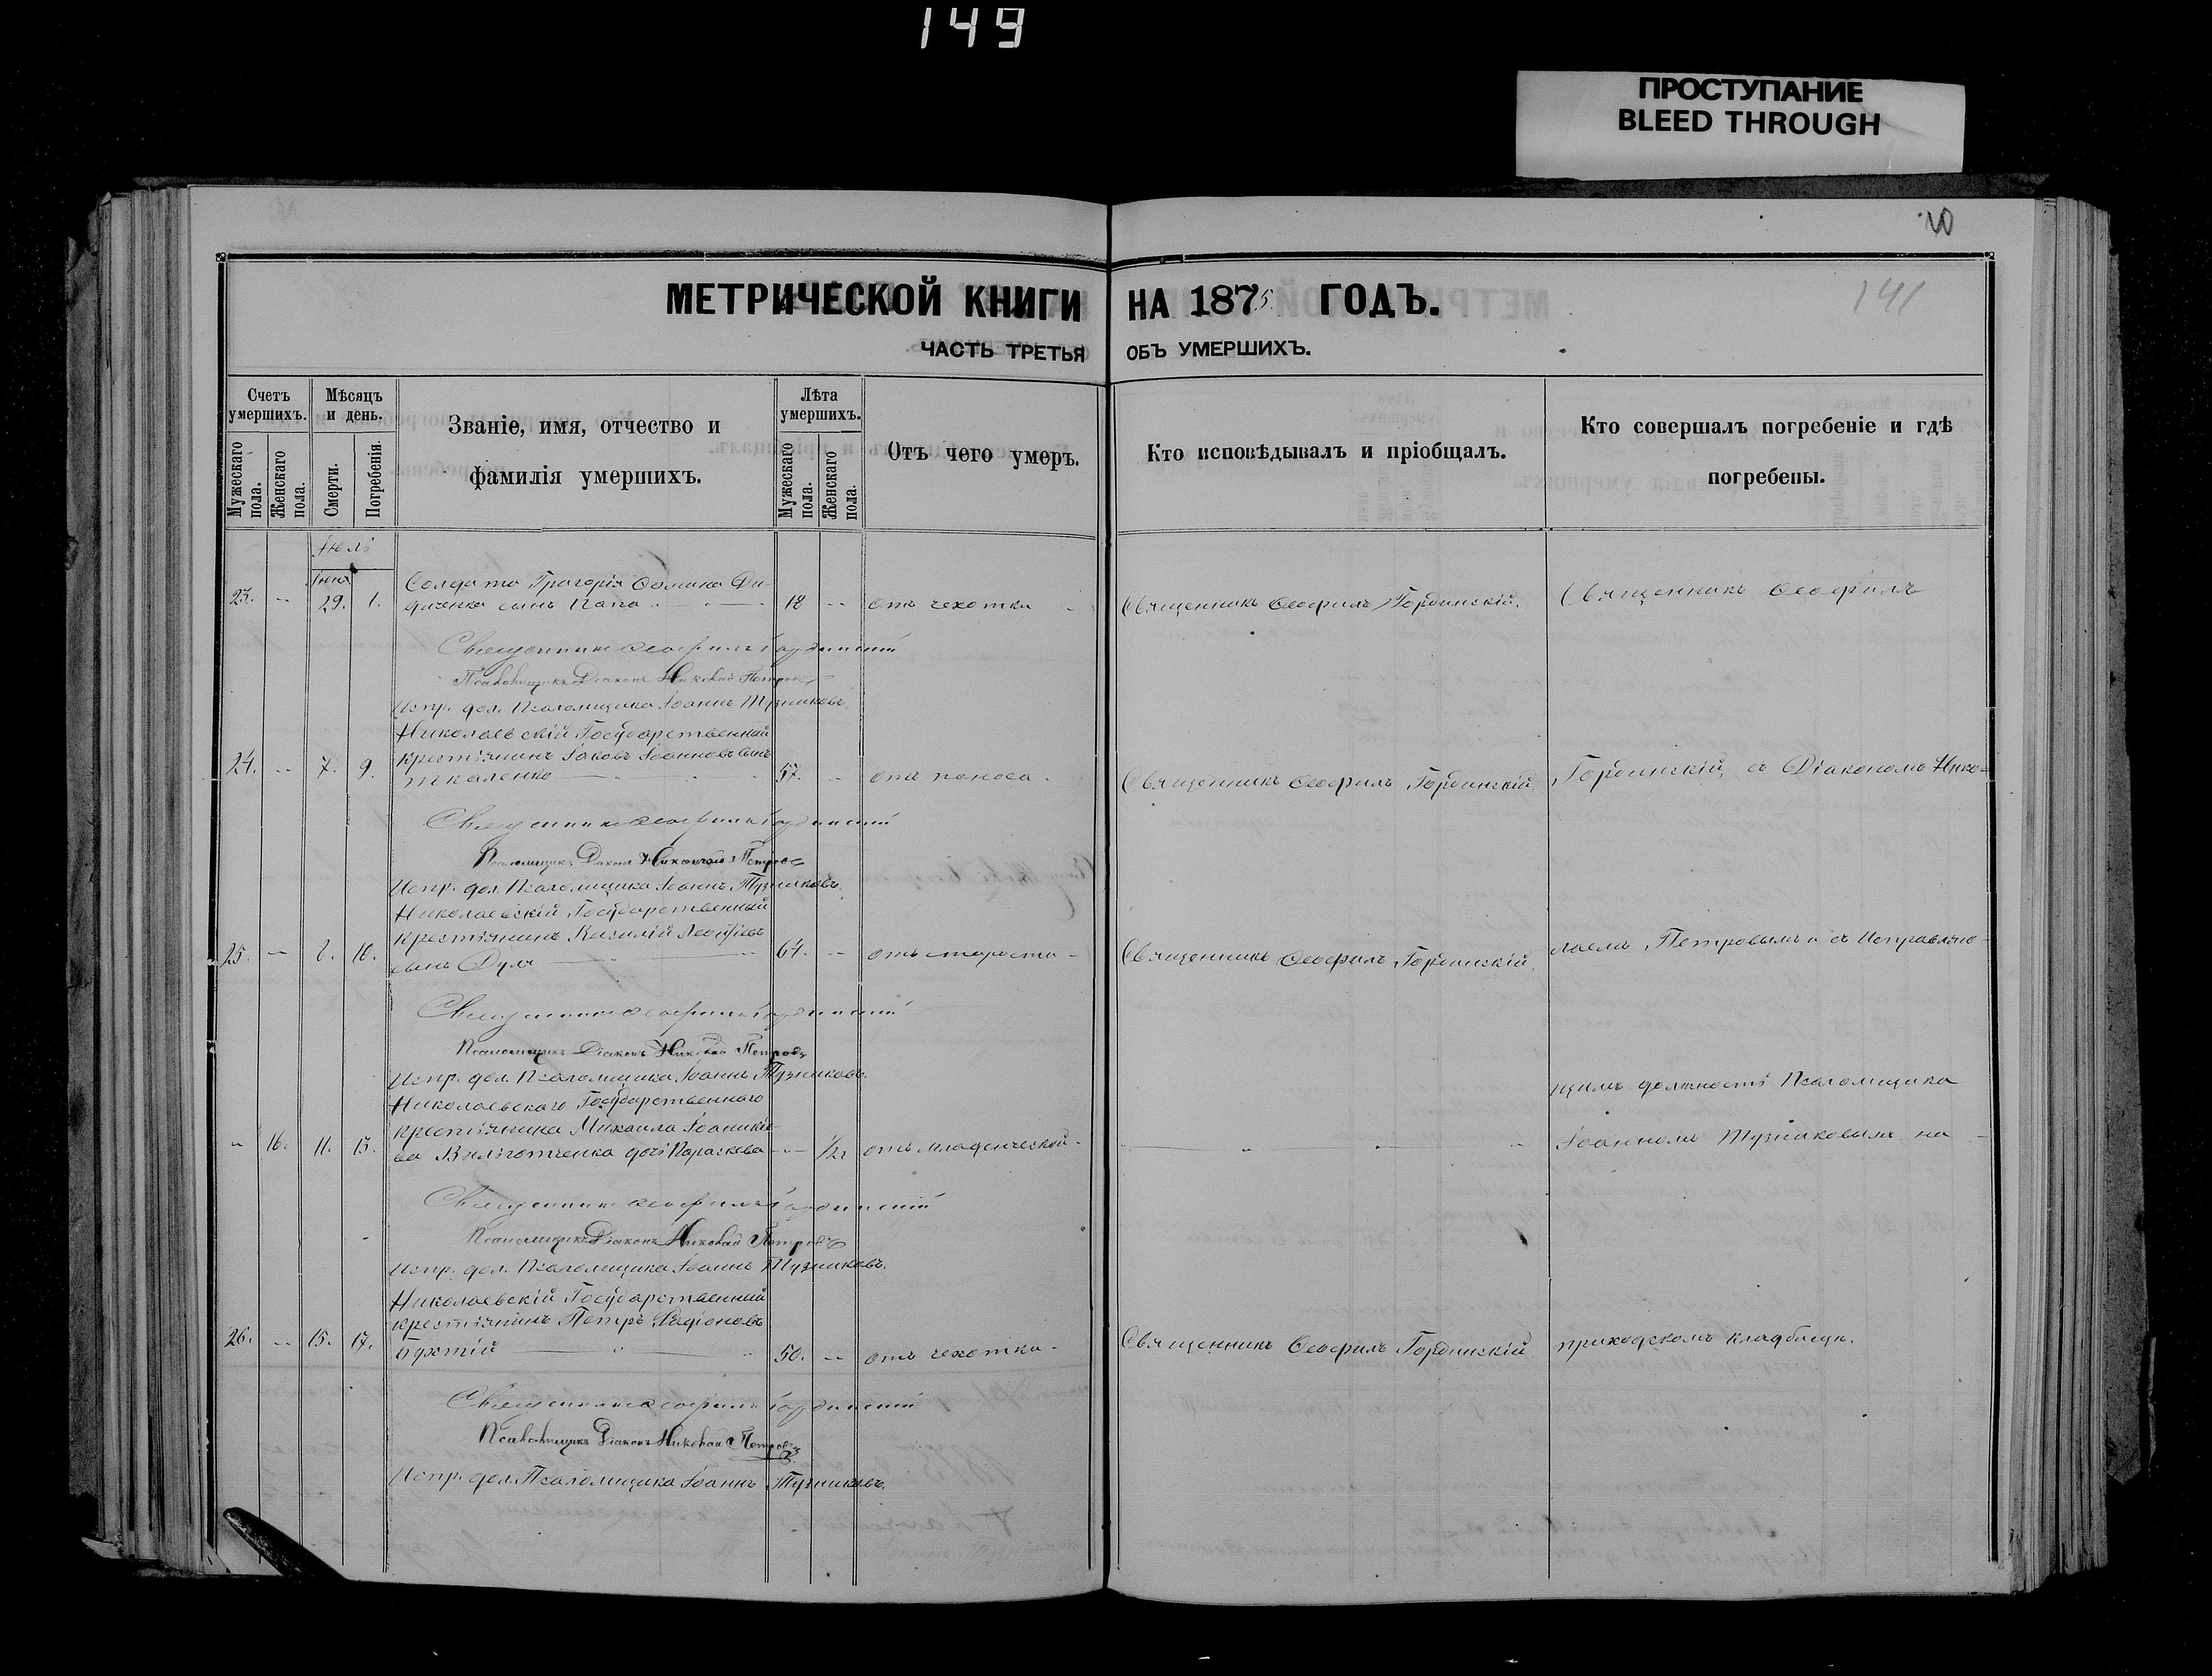 149
ПРОСТУПАНИЕ
BLEED THROUGH
141
МЕТРИЧЕСКОЙ КНИГИ НА 1875 ГОДЪ.
ЧАСТЬ ТРЕТЬЯ ОБЪ УМЕРШИХЪ.
Счетъ умершихъ.
Мужескаго пола.
Женскаго пола.
Мѣсяцъ и день.
Смерти.
Погребенія.
Званіе, имя, отчество и
фамилія умершихъ.
Лѣта умершихъ.
Мужескаго пола.
Женскаго пола.
Отъ чего умеръ.
Кто исповѣдывалъ и пріобщалъ.
Кто совершалъ погребеніе и гдѣ
погребены.
Іюль
Іюня
23. 29. 1. Солдата Григорія
сынъ 18 отъ чахотки Священникъ Ѳеофилъ Гординскій. Священникъ Ѳеофилъ
Священникъ Ѳеофилъ Гординскій
Псаломщикъ Діаконъ Николай Петровъ
Испр. дол. Псаломщика Іоаннъ Тузниковъ.
Николаевскій Государственный
крестьянинъ Іаковъ Іоанновъ сынъ
24. 7. 9. 57. отъ поноса Священникъ Ѳеофилъ Гординскій Гординскій, съ Діакономъ Нико-
Священникъ Ѳеофилъ Гординскій
Псаломщикъ Діаконъ Николай Петровъ
Испр. дол. Псаломщика Іоаннъ Тузниковъ.
Николаевскій Государственный
крестьянинъ Василій
25. 8. 10. сынъ Дуля 64. отъ старости Священникъ Ѳеофилъ Гординскій. лаемъ Петровымъ и съ Исправляю-
Священникъ Ѳеофилъ Гординскій
Псаломщикъ Діаконъ Николай Петровъ
Испр. дол. Псаломщика Іоаннъ Тузниковъ.
Николаевского Государственного щимъ должность Псаломщика
крестьянина Михаила Іоаникіе-
16. 11. 13. ва дочь Параскева 1/2 отъ младенческой Іоанномъ Тузниковымъ на
Священникъ Ѳеофилъ Гординскій
Псаломщикъ Діаконъ Николай Петровъ
Испр. дол. Псаломщика Іоаннъ Тузниковъ.
Николаевскій Государственный
крестьянинъ Петръ Родіоновъ
26. 15. 17. 50. отъ чахотки Священникъ Ѳеофилъ Гординскій приходскомъ кладбищѣ.
Священникъ Ѳеофилъ Гординскій
Псаломщикъ Діаконъ Николай Петровъ
Испр. дол. Псаломщика Іоаннъ Тузниковъ.